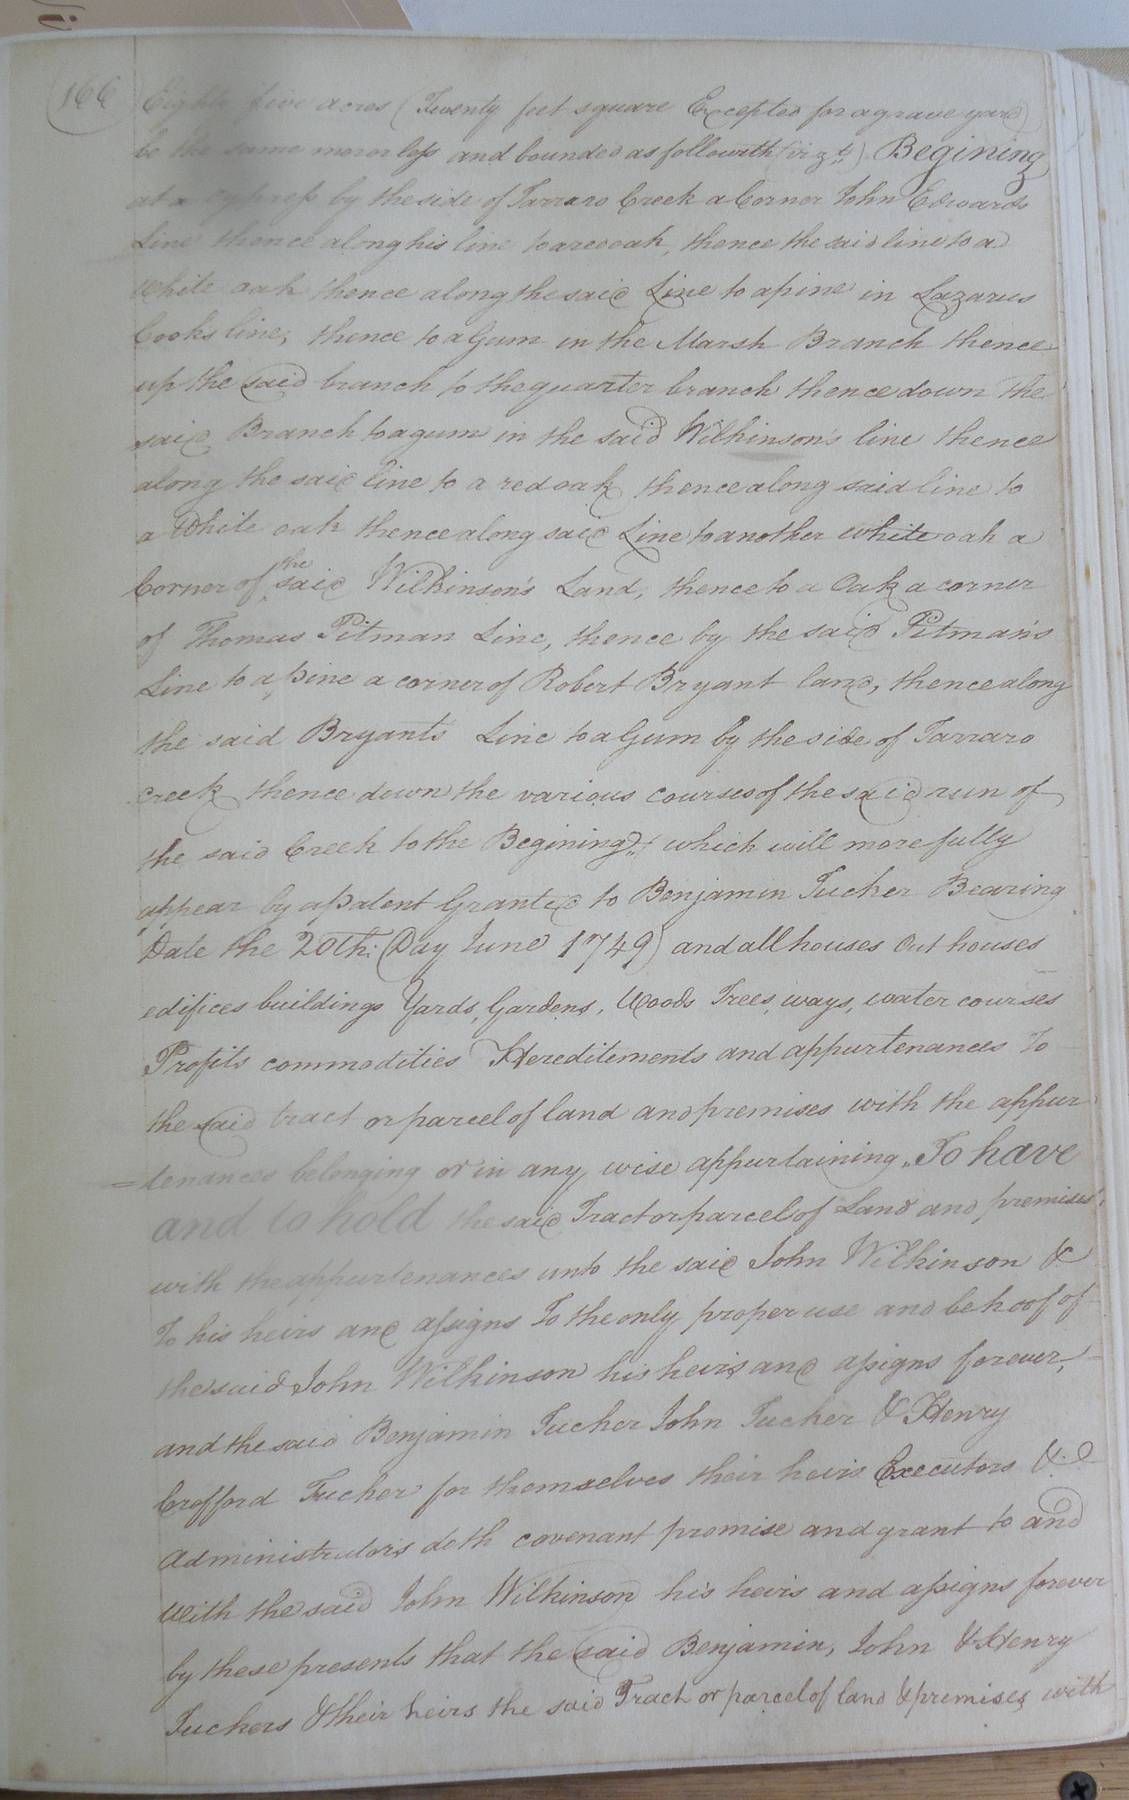 166
Eighty five acres (Twenty feet square Excepted for a grave yard)
be the same more or less and bounded as followith (vizt) Begining
at a cypress by the side of Tarraro Creek a Corner John Edwards
Line thence along his line to a red oak, thence the said line to a
white oak thence along the said Line to a pine in Lazarus
Cooks line, thence to a Gum in the Marsh Branch thence
up the said branch to the quarter branch thence down the
said Branch to a gum in the said Wilkinson's line thence
along the said line to a red oak thence along said line to
a white oak thence along said Line to another white oak a
Corner of the said Wilkinson's Land, thence to a Oak a corner
of Thomas Pitman Line, thence by the said Pitman's
Line to a pine a corner of Robert Bryant land, thence along
the said Bryants Line to a Gum by the side of Tarraro
creek thence down the various courses of the said run of
the said Creek to the Begining, which will more fully
appear by a patent Granted to Benjamin Tucker Bearing
Date the 20th: (Day June 1749) and all houses Out houses
edifices buildings Yards, Gardens, Woods Trees, ways, water courses
Profits commodities Hereditements and appurtenances To
the said tract or parcel of land and premises with the appur
=tenances belonging or in any wise appurtaining, To have
and to hold the said Tract or parcel of Land and premises,
with the appurtenances unto the said John Wilkinson &
To his heirs and assigns To the only proper use and behoof of
the said John Wilkinson his heirs and assigns forever,
and the said Benjamin Tucker John Tucker & Henry
Crofford Tucker for themselves their heirs Executors &
Administrators doth covenant promise and grant to and
with the said John Wilkinson his heirs and assigns forever
by these presents that the said Benjamin, John & Henry
Tuckers & their heirs the said Tract or parcel of land & premises with